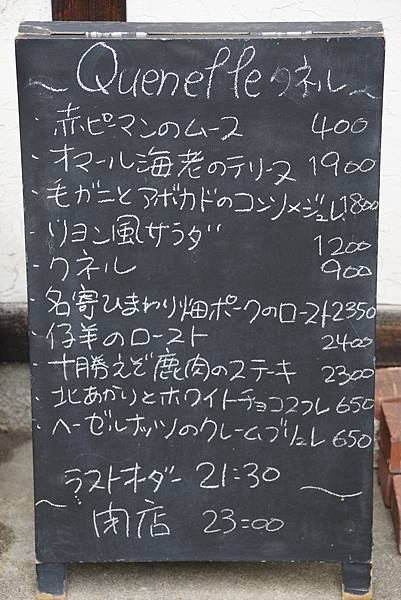 ~ Quenelle クネル ~
・赤ピーマンのムース 400
・オマール海老のテリーヌ 1900
・毛ガニとアボカドのコンソメジュレ 1800
・リヨン風サラダ 1200
・クネル 900
・名寄ひまわり畑ポークのロースト 2350
・仔羊のロースト 2400
・十勝えぞ鹿肉のステーキ 2300
・北あかりとホワイトチョコスフレ 650
・ヘーゼルナッツのクレームブリュレ 650
ラストオーダー 21:30
閉店 23:00